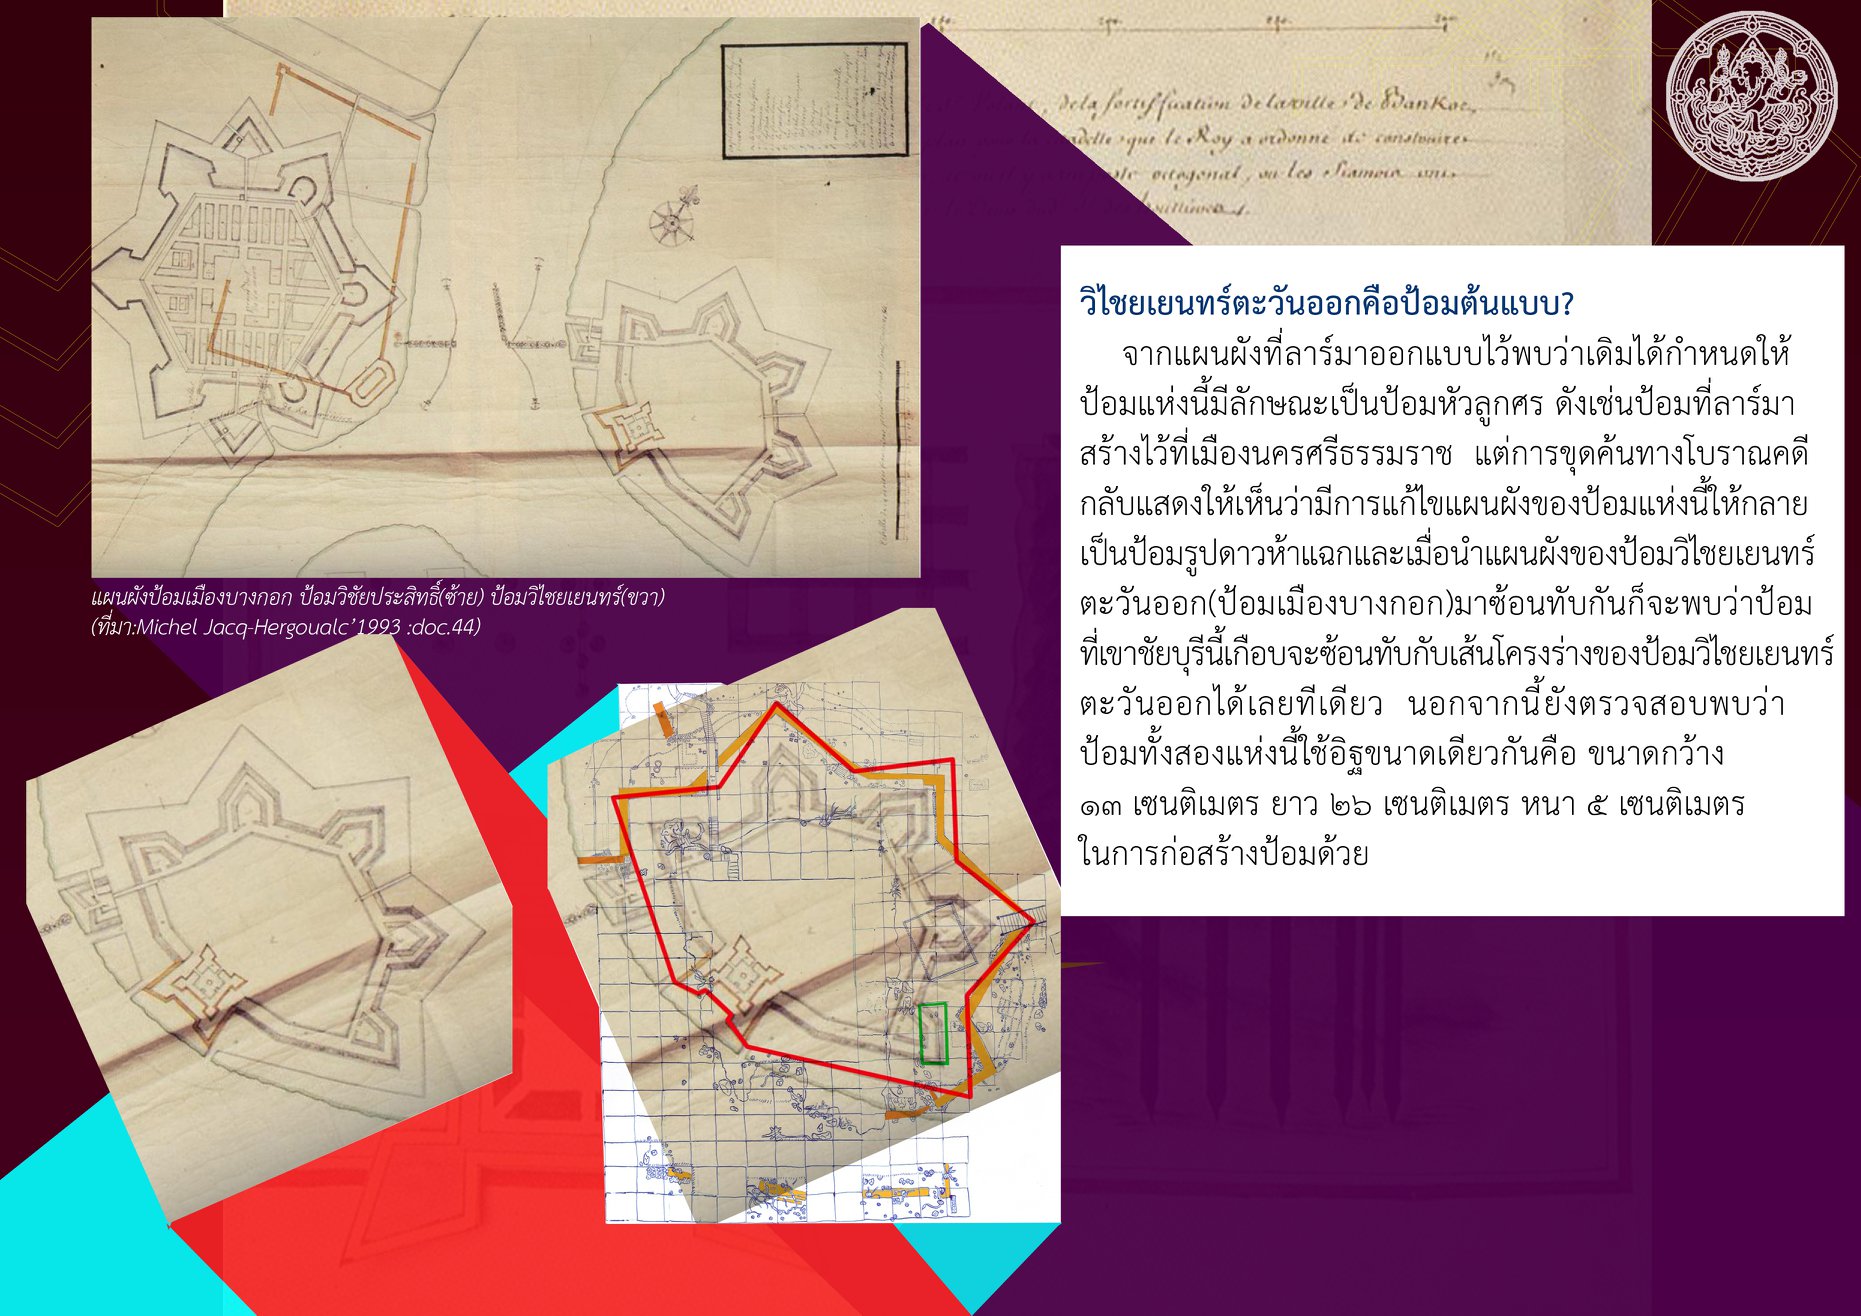 de la fortiffication de la ville de Bankoc
que le Roy a ordonné de construire
octogonal, ou les Siamois ont
วิไชยเยนทร์ตะวันออกคือป้อมต้นแบบ?
จากแผนผังที่ลาร์มาออกแบบไว้พบว่าเดิมได้กำหนดให้
ป้อมแห่งนี้มีลักษณะเป็นป้อมหัวลูกศร ดังเช่นป้อมที่ลาร์มา
สร้างไว้ที่เมืองนครศรีธรรมราช แต่การขุดค้นทางโบราณคดี
กลับแสดงให้เห็นว่ามีการแก้ไขแผนผังของป้อมแห่งนี้ให้กลาย
เป็นป้อมรูปดาวห้าแฉกและเมื่อนำแผนผังของป้อมวิไชยเยนทร์
ตะวันออก(ป้อมเมืองบางกอก)มาซ้อนทับกันก็จะพบว่าป้อม
ที่เขาชัยบุรีนี้เกือบจะซ้อนทับกับเส้นโครงร่างของป้อมวิไชยเยนทร์
ตะวันออกได้เลยทีเดียว นอกจากนี้ยังตรวจสอบพบว่า
ป้อมทั้งสองแห่งนี้ใช้อิฐขนาดเดียวกันคือ ขนาดกว้าง
๑๓ เซนติเมตร ยาว ๒๖ เซนติเมตร หนา ๕ เซนติเมตร
ในการก่อสร้างป้อมด้วย
แผนผังป้อมเมืองบางกอก ป้อมวิชัยประสิทธิ์(ซ้าย) ป้อมวิไชยเยนทร์(ขวา)
(ที่มา:Michel Jacq-Hergoualc’1993 :doc.44)